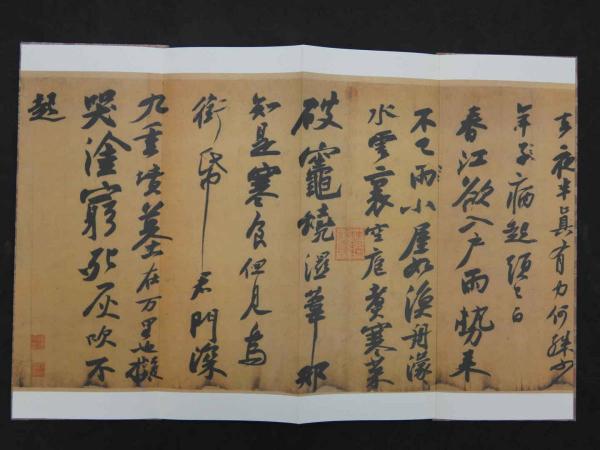 去夜半真有力何殊少
年子病起頭已白
春江欲入戶雨勢來
不已雨小屋如漁舟濛
水雲裏空庖煑寒菜
破竈燒濕葦那
知是寒食但見烏
銜帋君門深
九重墳墓在万里也擬
哭塗窮死灰吹不
起